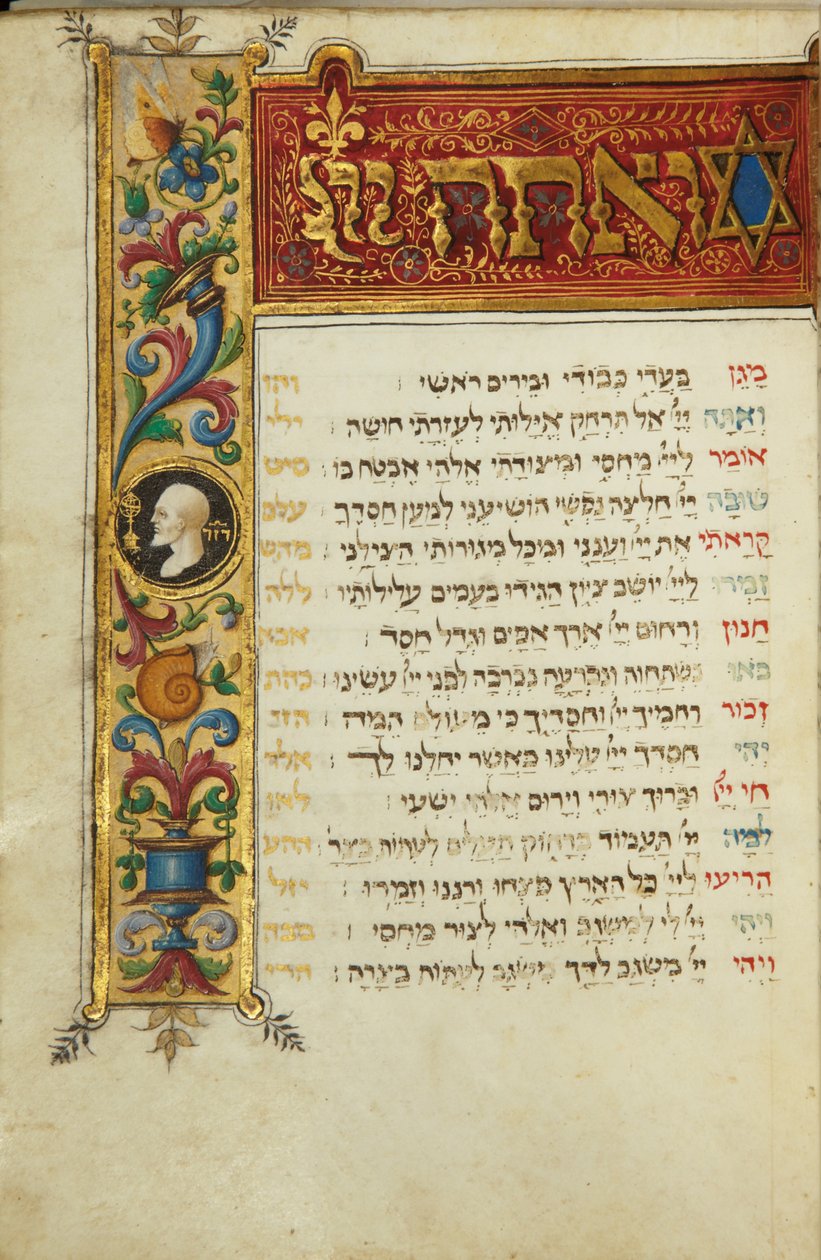 ואתה יי
מגן בעדי כבודי ומירים ראשי : והו
ואתה יי׳ אל תרחק אילותי לעזרתי חושה : ילי
אומר ליי׳ מחסי ומצודתי אלהי אבטח בו : סיט
שובה יי׳ חלצה נפשי הושיעני למען חסדך עלם
קראתי את יי׳ וענני ומיכל מגורותי הצילני מהש
זמרו ליי׳ יושב ציון הגידו בעמים עלילותיו : ללה
חנון ורחום יי׳ ארך אפים וגדל חסד : אכא
באו נשתחוה ונכרעה נברכה לפני יי׳ עשינו : כהת
זכור רחמיך יי׳ וחסדיך כי מעולם המה : הזי
יהי חסדך יי׳ עלינו כאשר יחלנו לך : אלד
חי יי׳ וברוך צורי וירום אלהי ישעי : לאו
למה יי׳ תעמוד ברחוק תעלים לעתות בצר׳ : ההע
הריעו ליי׳ כל הארץ פצחו ורננו וזמרו : יזל
ויהי יי׳ לי למשגב ואלהי לצור מחסי : מבה
ויהי יי׳ משגב לדך משגב לעתות בצרה : הרי
דוד